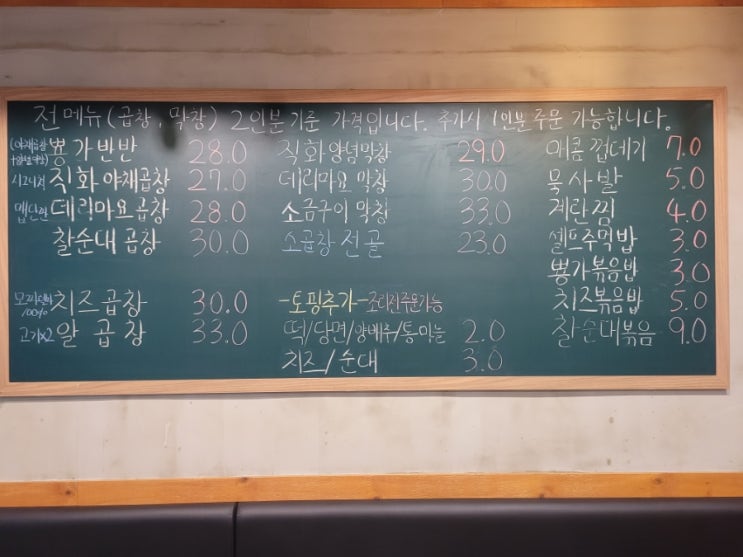 전메뉴(곱창, 막창) 2인분기준 가격입니다. 추가시 1인분주문 가능합니다.
(야채곱창 뽕가반반 28.0
시그니쳐 직화야채곱창 27.0
맵단짠 데리마요곱창 28.0
찰순대곱창 30.0
모짜렐라 100% 치즈곱창 30.0
고기x2 알곱창 33.0
직화양념막창 29.0
데리마요 막창 30.0
소금구이 막창 33.0
소곱창전골 23.0
-토핑추가- 조리전주문가능
떡/당면/양배추/통마늘 2.0
치즈/순대 3.0
매콤껍데기 7.0
묵사발 5.0
계란찜 4.0
셀프주먹밥 3.0
뽕가볶음밥 3.0
치즈볶음밥 5.0
찰순대볶음 9.0